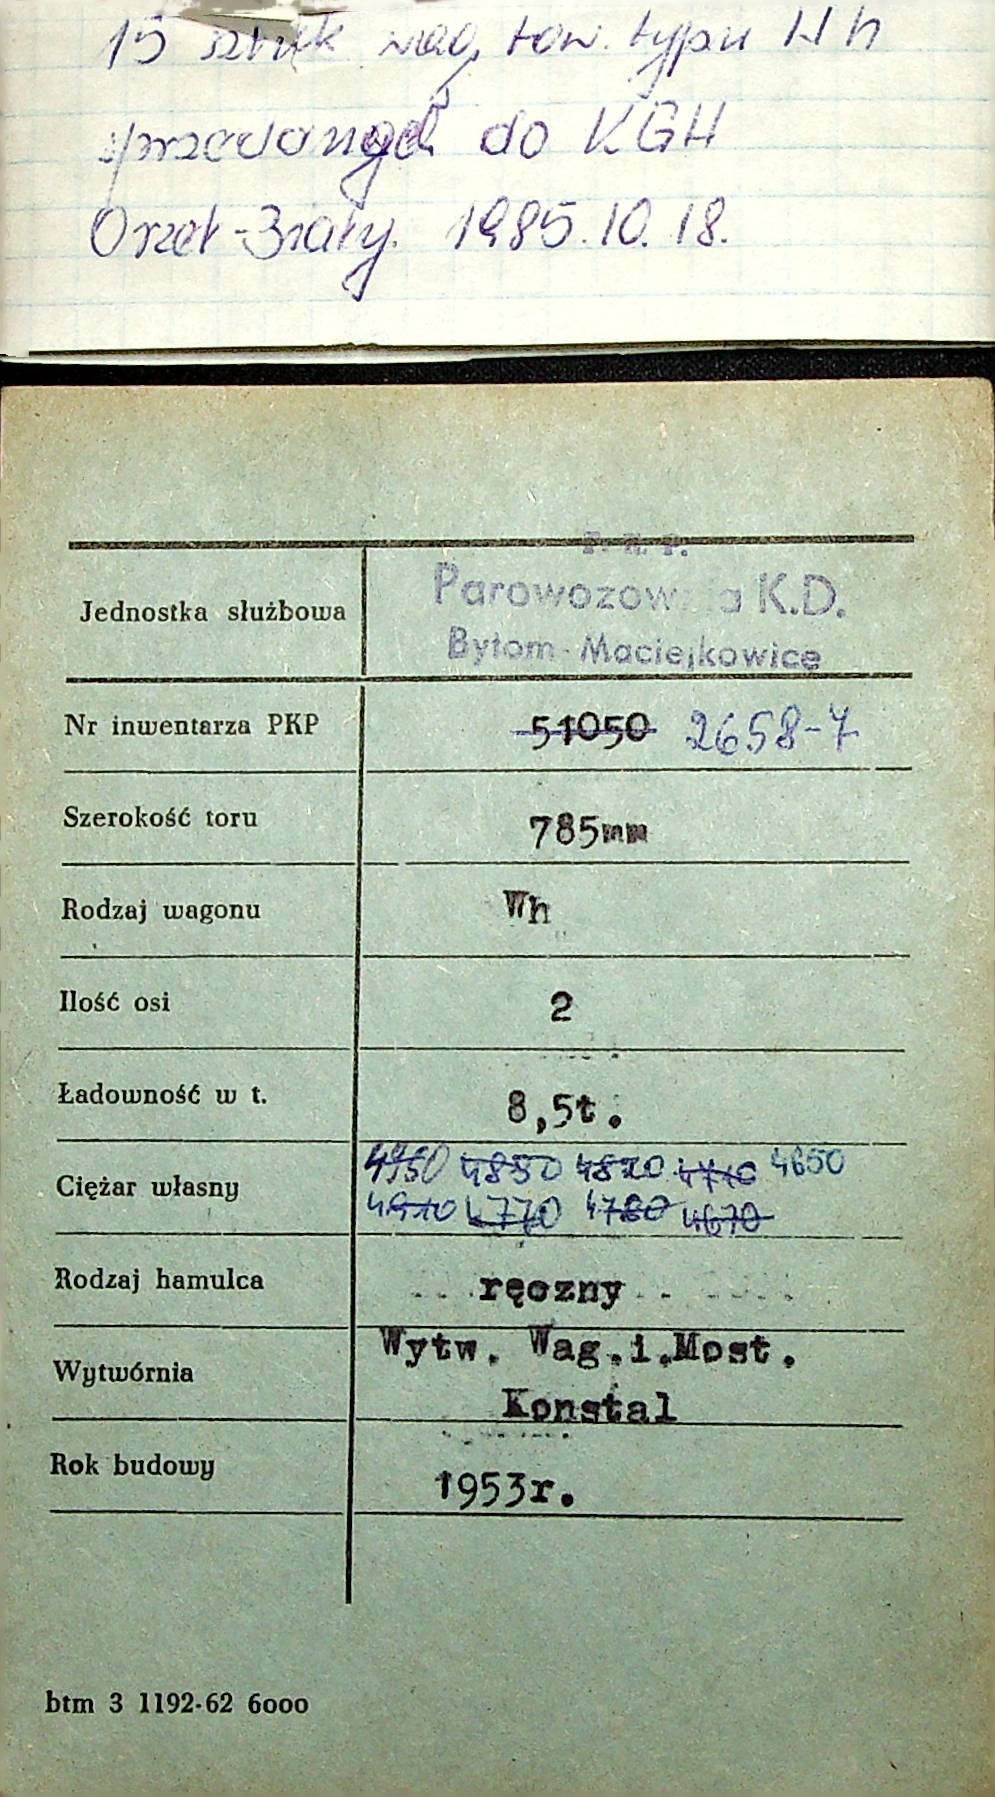 15 sztuk wag. tow. typu Wh
sprzedanych do KGH
Orzeł-Biały. 1985.10.18.
P. K. P.
Parowozownia K.D.
Bytom-Maciejkowice
Jednostka służbowa
Nr inwentarza PKP 51050 2658-7
Szerokość toru 785mm
Rodzaj wagonu Wh
Ilość osi 2
Ładowność w t. 8,5t.
4950 4850 4820 4710 4650
Ciężar własny
4910 4770 4780 4670
Rodzaj hamulca ręczny
Wytw. Wag.i.Most.
Wytwórnia
Konstal
Rok budowy 1953r.
btm 3 1192-62 6000